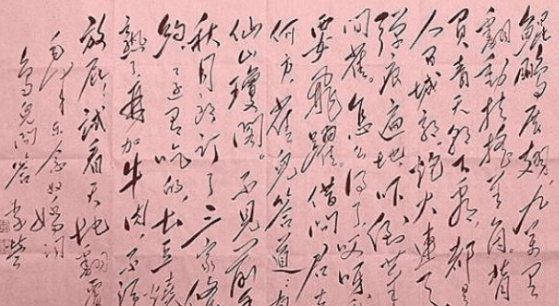 鲲鹏展翅九万里
翻动扶摇羊角背
负青天朝下看都是
人间城郭炮火连天
弹痕遍地吓倒蓬
间雀。怎么得了哎呀
要飞跃借问君去
何方雀儿答道有
仙山琼阁。不见前年
秋月朗订了三家条
约还有吃的土豆烧
熟了再加牛肉不须
放屁试看天地翻覆
毛泽东念奴娇词
鸟儿问答